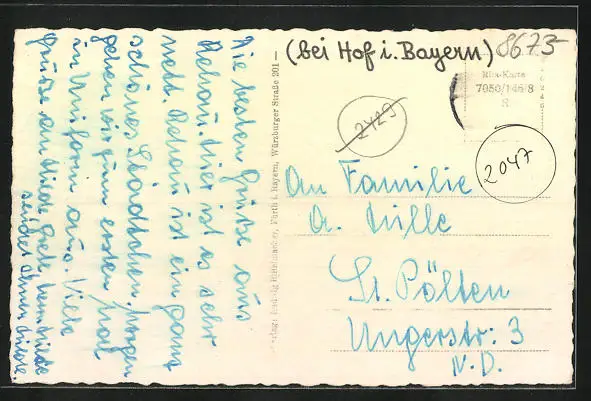 Die besten Grüße aus
Rehau. Hier ist es sehr
nett. Rehau ist ein ganz
schönes Städtchen. Morgen
gehen wir zum ersten Mal
in Uniform aus. Viele
Grüße an
sendet Ihnen
(bei Hof i. Bayern) 8673
Rika-Karte
7950/146/8
S
2429
2047
Verlag: Ludwig Riffelmacher, Fürth i. Bayern, Würzburger Straße 201
An Familie
A.
St. Pölten
Ungerstr: 3
N.D.